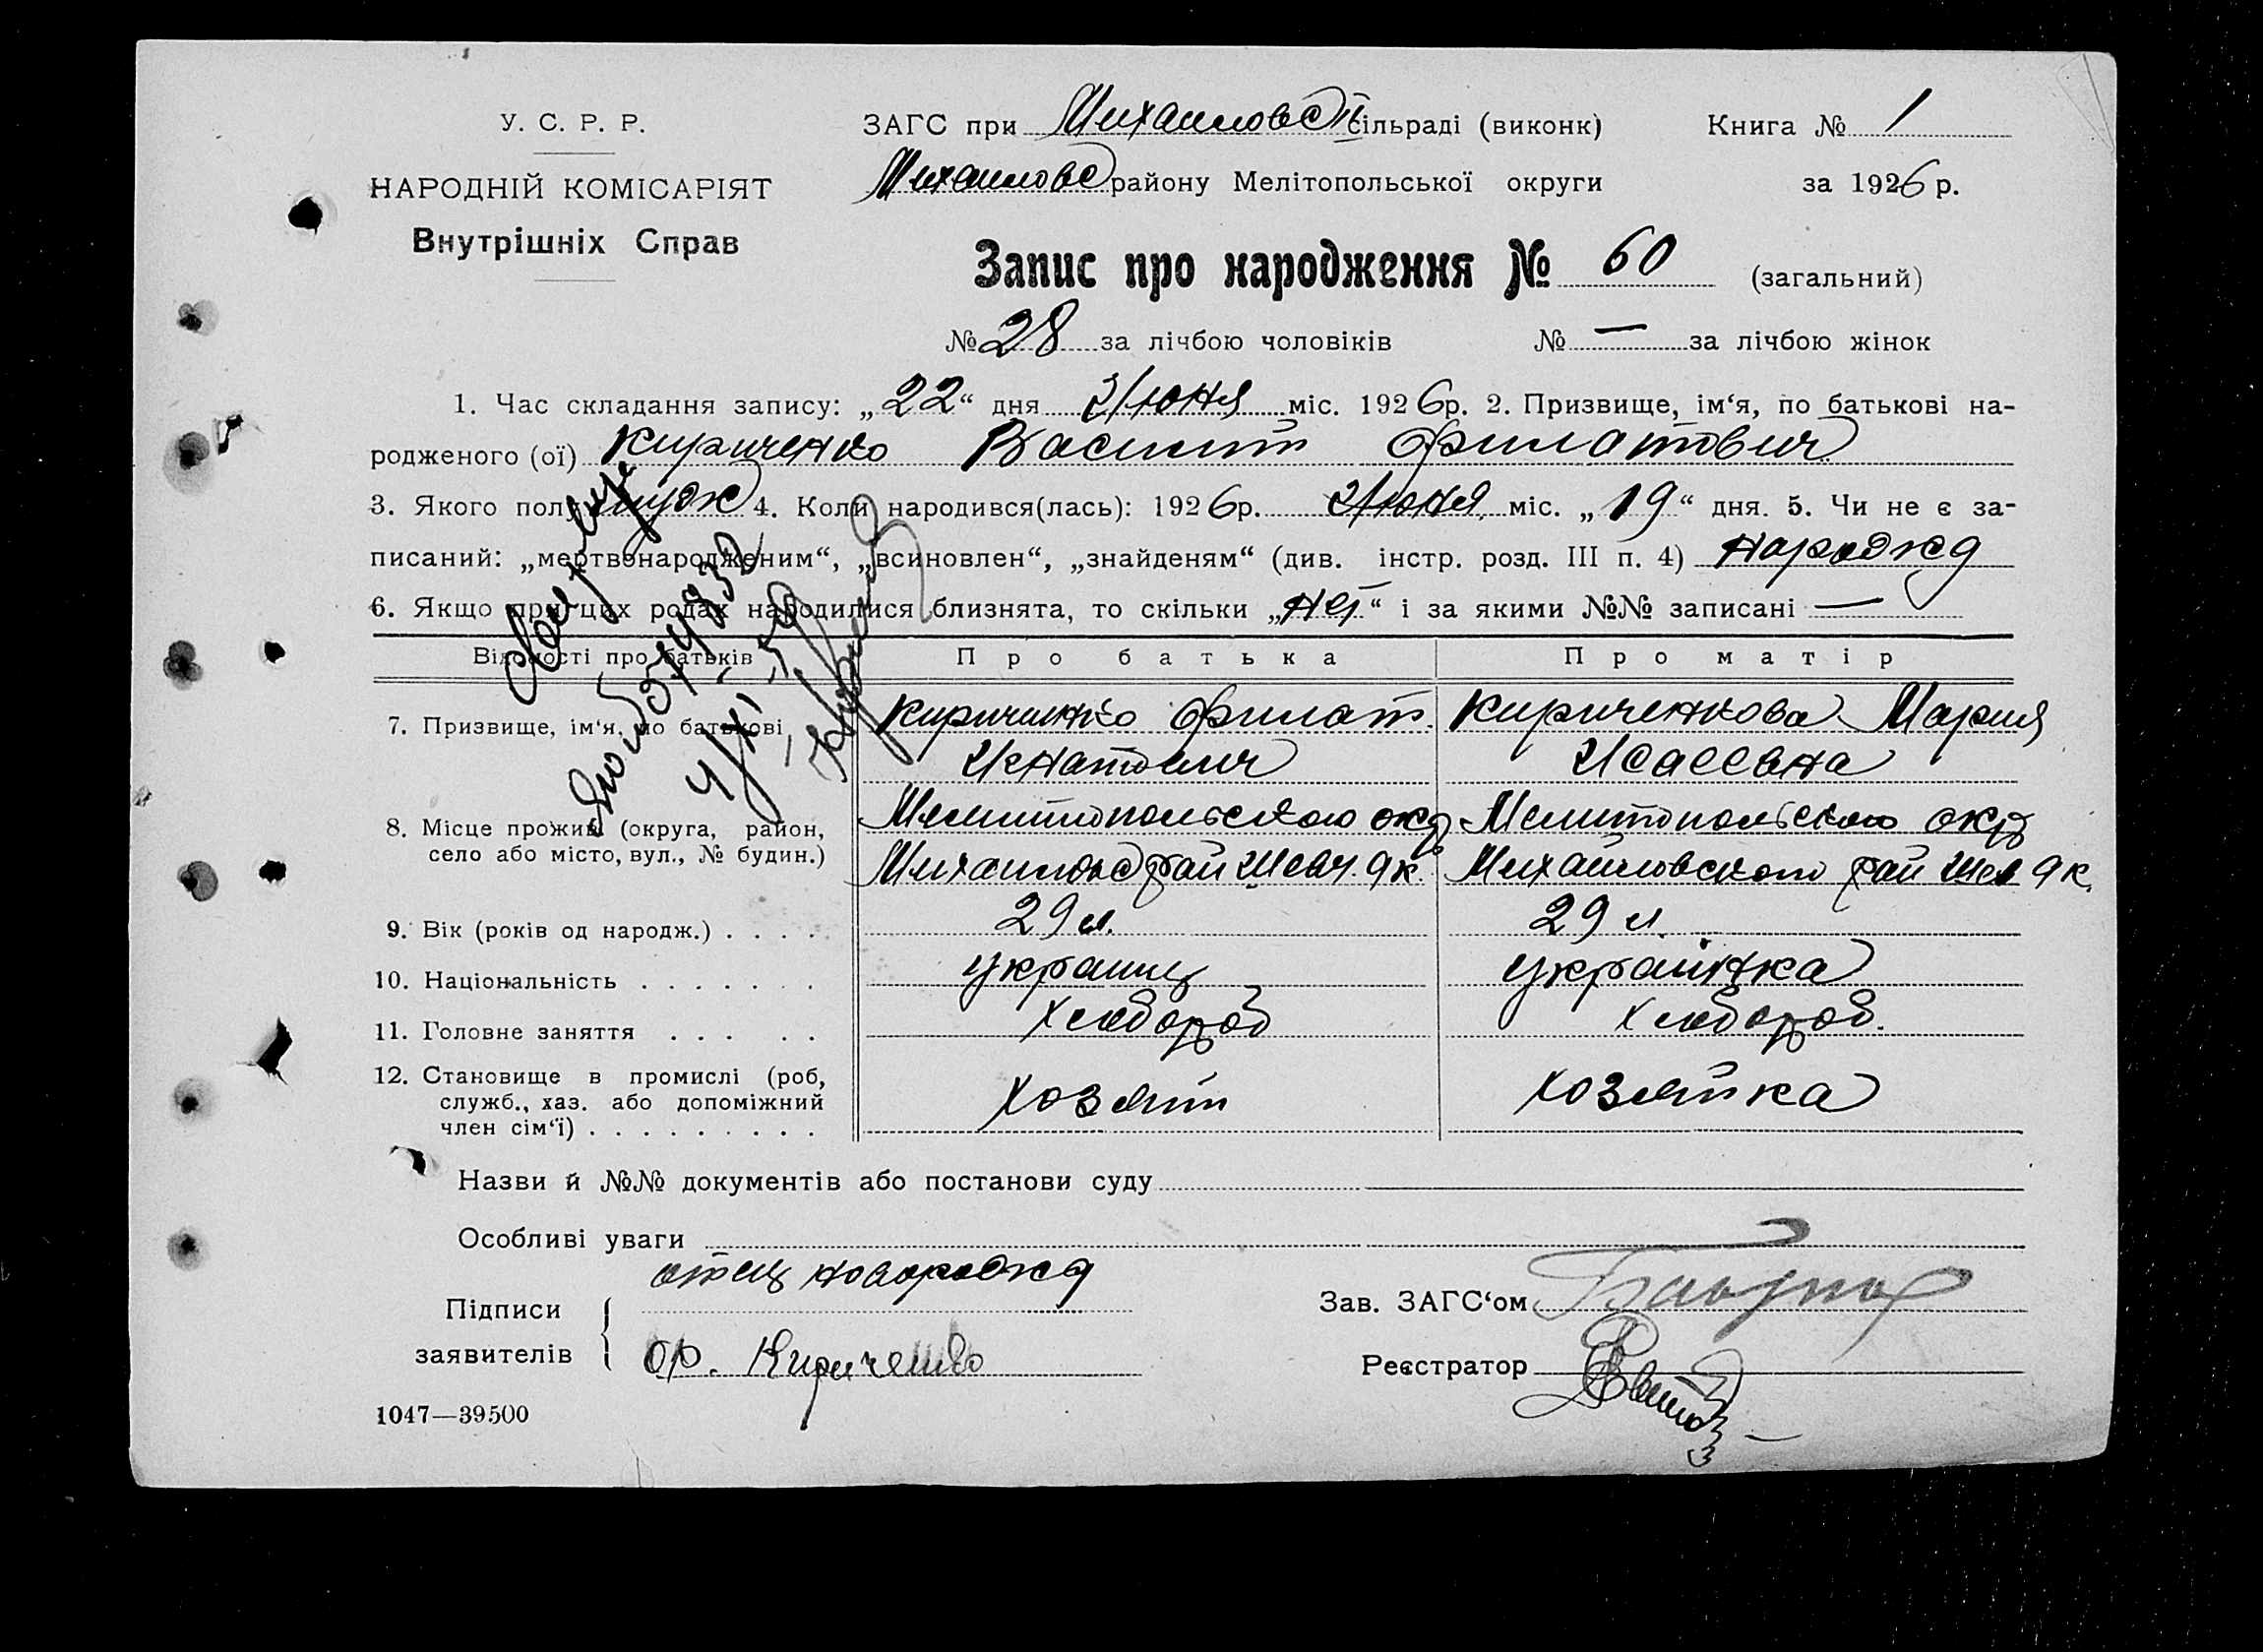 У. С. Р. Р.
НАРОДНІЙ КОМІСАРІЯТ
Внутрішніх Справ
ЗАГС при Михаиловс сільраді (виконк) Книга № 1
Михаиловс району Мелітопольської округи за 1926 р.
Запис про народження № 60 (загальний)
№ 28 за лічбою чоловіків № — за лічбою жінок
1. Час складання запису: „22“ дня Июня міс. 1926 р. 2. Призвище, ім‘я, по батькові на-
родженого (ої) Кириченко Василий Филатович
3. Якого полу муж 4. Коли народився(лась): 1926 р. Июня міс. „19“ дня. 5. Чи не є за-
писаний: „мертвонародженим“, „всиновлен“, „знайденям“ (див. інстр. розд. III п. 4)
6. Якщо при цих родах народилися близнята, то скільки „нет“ і за якими №№ записані —
Відомості про батьків Про батька Про матір
7. Призвище, ім‘я, по батькові Кириченко Филат Кириченкова Мария
Игнатович Исаевна
8. Місце прожив. (округа, район, Мелитопольского окр Мелитопольского окр
село або місто, вул., № будин.) Михаиловс рай Шевч. 9 к. Михайловского рай Шев 9 к.
9. Вік (років од народж.) . . . . 29 л. 29 л.
10. Національність . . . . . . . украинец украинка
11. Головне заняття . . . . . хлебороб хлебороб.
12. Становище в промислі (роб,
служб., хаз. або допоміжний хозяин хозяйка
член сім‘ї) . . . . . . . . .
Назви й №№ документів або постанови суду
Особливі уваги
отец
Підписи
заявителів Ф. Кириченко
Зав. ЗАГС‘ом
Реєстратор
1047—39500